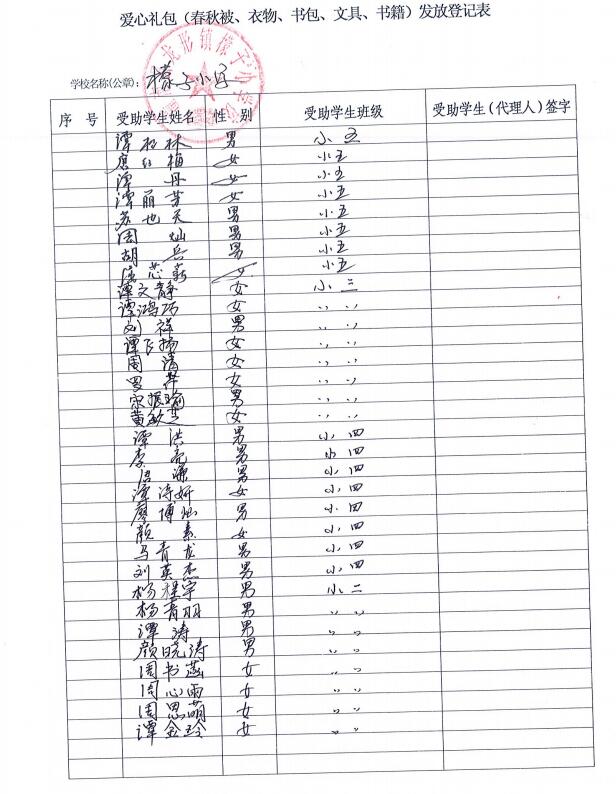 爱心礼包（春秋被、衣物、书包、文具、书籍）发放登记表
学校名称(公章)：檬子小学
序 号 受助学生姓名 性 别 受助学生班级 受助学生（代理人）签字
谭 林 男 小五
唐红梅 女 小五
谭 丹 女 小五
谭丽芳 女 小五
苏也天 男 小五
周 灿 男 小五
胡 兵 男 小五
芯 女 小五
谭文静 女 小三
谭鸿巧 女 〃 〃
刘 祥 男 〃 〃
谭飞扬 女 〃 〃
周 清 女 〃 〃
罗 萍 女 〃 〃
宋振 男 〃 〃
黄 女 〃 〃
谭 洪 男 小四
李 亮 男 小四
男 小四
谭诗妍 女 小四
廖博 男 小四
颜 素 女 小四
马青龙 男 小四
刘英杰 男 小四
杨程宇 男 小二
杨青羽 男 〃 〃
谭 涛 男 〃 〃
颜晓涛 男 〃 〃
周书涵 女 〃 〃
周心雨 女 〃 〃
周思萌 女 〃 〃
谭金玲 女 〃 〃